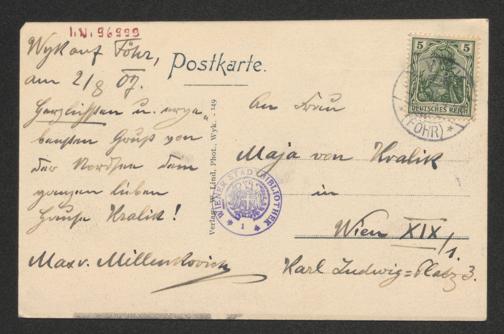 I.N. 96999
Wyk auf Föhr,
am 21/8 07.
Herzlichsten u. erge„
bensten Gruß von
der Nordsee dem
ganzen lieben
Hause Kralik!
Max v. Millenkovich
Postkarte.
Verlag W. Lind, Phot., Wyk. - 149
WIENER STADTBIBLIOTHEK
1
5 5
DEUTSCHES REICH
(FÖHR)
An Frau
Maja von Kralik
in
Wien XIX/1.
Karl Ludwig=Platz 3.